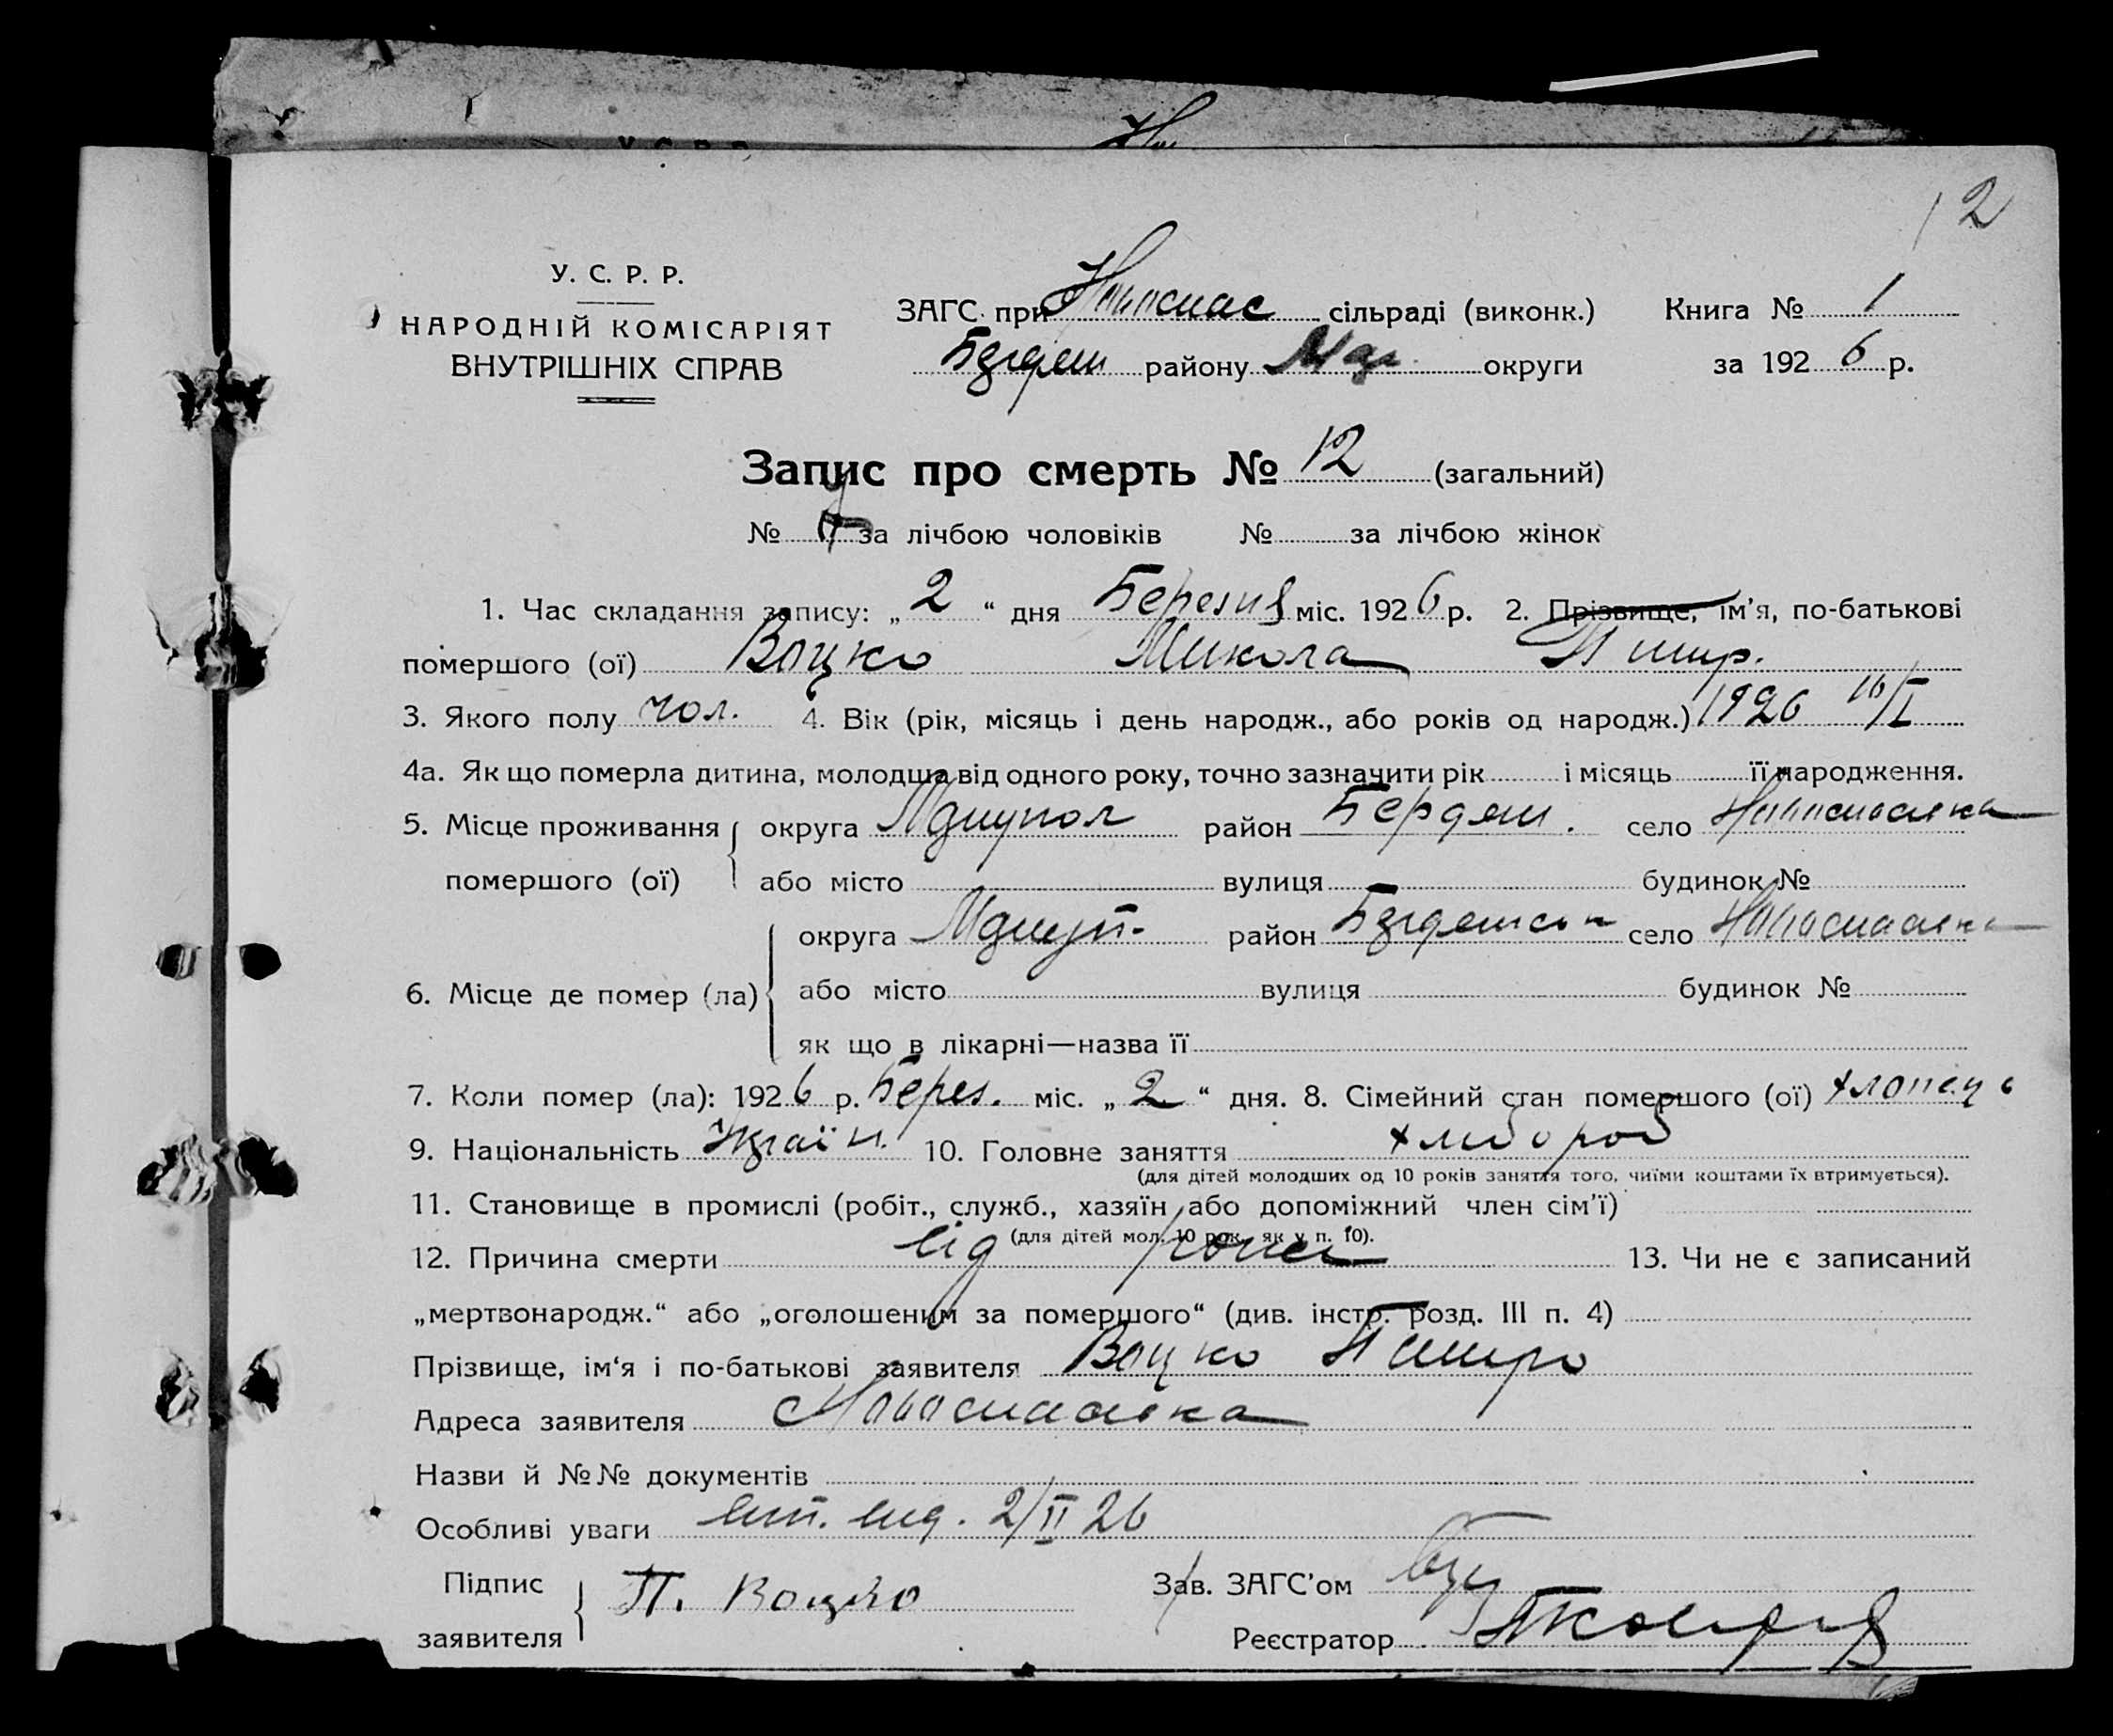 12
У. С. Р. Р.
НАРОДНІЙ КОМІСАРІЯТ
ВНУТРІШНІХ СПРАВ
ЗАГС при Новоспас сільраді (виконк.)
Бердян району Мар. округи
Книга № 1
за 1926 р.
Запис про смерть № 12 (загальний)
№ 7 за лічбою чоловіків № за лічбою жінок
1. Час складання запису: „ 2 “ дня Березня міс. 1926 р. 2. Прізвище, ім'я, по-батькові
помершого (ої) Вацко Микола Петр.
3. Якого полу чол. 4. Вік (рік, місяць і день народж., або років од народж.) 1926 16/I
4а. Як що померла дитина, молодша від одного року, точно зазначити рік і місяць її народження.
5. Місце проживання округа Маріупол район Бердян. село Новоспасівка
помершого (ої) або місто вулиця будинок №
округа Маріуп. район Бердянськ село Новоспасівка
6. Місце де помер (ла) або місто вулиця будинок №
як що в лікарні—назва її
7. Коли помер (ла): 1926 р. Берез. міс. „ 2 “ дня. 8. Сімейний стан помершого (ої) хлопець
9. Національність Україн. 10. Головне заняття хлибороб
(для дітей молодших од 10 років заняття того, чиїми коштами їх втримується).
11. Становище в промислі (робіт., служб., хазяїн, або допоміжний член сім'ї)
(для дітей мол. 10 рок. як у п. 10).
12. Причина смерти від 13. Чи не є записаний
„мертвонародж.“ або „оголошеним за помершого“ (див. інстр. розд. III п. 4)
Прізвище, ім'я і по-батькові заявителя Вацко Петро
Адреса заявителя Новоспасівка
Назви й №№ документів
Особливі уваги вид. 2/II 26
Підпис П. Вацко
заявителя
Зав. ЗАГС'ом
Реєстратор